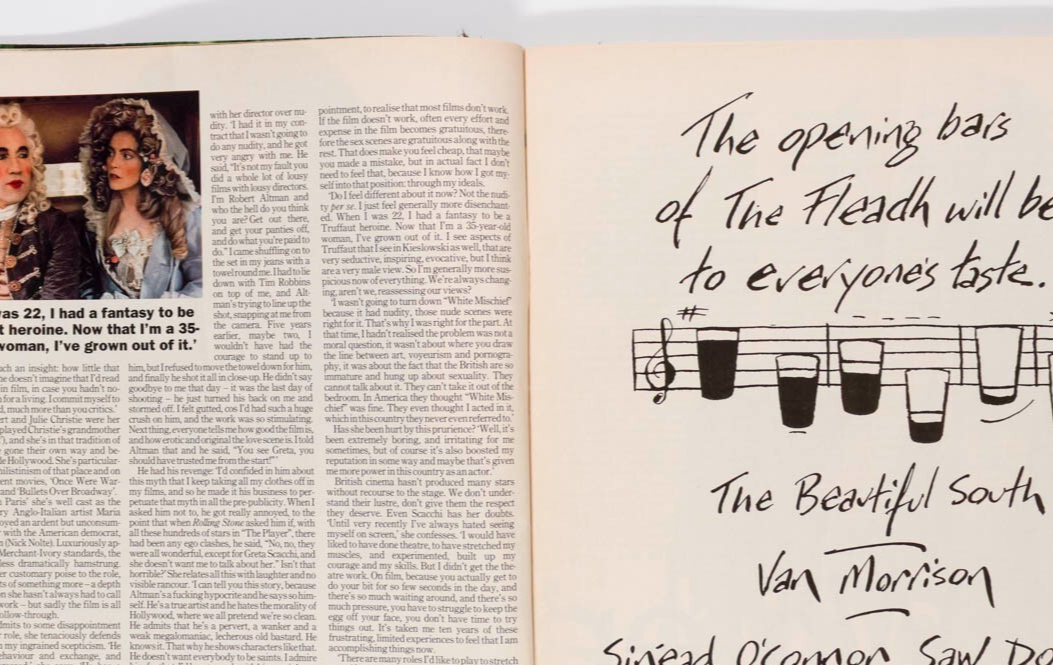 was 22, I had a fantasy to be
t heroine. Now that I'm a 35-
woman, I've grown out of it.'
ch an insight: how little that
e doesn't imagine that I'd read
n film, in case you hadn't no-
for a living. I commit myself to
d, much more than you critics.'
rt and Julie Christie were her
played Christie's grandmother
'), and she's in that tradition of
gone their own way and be-
le Hollywood. She's particular-
hilistinism of that place and on
ent movies, 'Once Were War-
and 'Bullets Over Broadway'.
Paris' she's well cast as the
ry Anglo-Italian artist Maria
oyed an ardent but unconsum-
with the American democrat,
n (Nick Nolte). Luxuriously ap-
Merchant-Ivory standards, the
less dramatically hamstrung.
er customary poise to the role,
ts of something more – a depth
n she hasn't always had to call
work – but sadly the film is all
ollow-through.
dmits to some disappointment
role, she tenaciously defends
n my ingrained scepticism. 'He
haviour and exchange, and
with her director over nu-
dity. 'I had it in my con-
tract that I wasn't going to
do any nudity, and he got
very angry with me. He
said, "It's not my fault you
did a whole lot of lousy
films with lousy directors.
I'm Robert Altman and
who the hell do you think
you are? Get out there,
and get your panties off,
and do what you're paid to
do." I came shuffling on to
the set in my jeans with a
towel round me. I had to lie
down with Tim Robbins
on top of me, and Alt-
man's trying to line up the
shot, snapping at me from
the camera. Five years
earlier, maybe two, I
wouldn't have had the
courage to stand up to
him, but I refused to move the towel down for him,
and finally he shot it all in close-up. He didn't say
goodbye to me that day – it was the last day of
shooting – he just turned his back on me and
stormed off. I felt gutted, cos I'd had such a huge
crush on him, and the work was so stimulating.
Next thing, everyone tells me how good the film is,
and how erotic and original the love scene is. I told
Altman that and he said, "You see Greta, you
should have trusted me from the start!"'
He had his revenge. 'I'd confided in him about
this myth that I keep taking all my clothes off in
my films, and so he made it his business to per-
petuate that myth in all the pre-publicity. When I
asked him not to, he got really annoyed, to the
point that when Rolling Stone asked him if, with
all these hundreds of stars in "The Player", there
had been any ego clashes, he said, "No, no, they
were all wonderful, except for Greta Scacchi, and
she doesn't want me to talk about her." Isn't that
horrible?' She relates all this with laughter and no
visible rancour. 'I can tell you this story, because
Altman's a fucking hypocrite and he says so him-
self. He's a true artist and he hates the morality of
Hollywood, where we all pretend we're so clean.
He admits that he's a pervert, a wanker and a
weak megalomaniac, lecherous old bastard. He
knows it. That why he shows characters like that.
He doesn't want everybody to be saints. I admire
pointment, to realise that most films don't work.
If the film doesn't work, often every effort and
expense in the film becomes gratuitous, there-
fore the sex scenes are gratuitous along with the
rest. That does make you feel cheap, that maybe
you made a mistake, but in actual fact I don't
need to feel that, because I know how I got my-
self into that position: through my ideals.
'Do I feel different about it now? Not the nudi-
ty per se. I just feel generally more disenchant-
ed. When I was 22, I had a fantasy to be a
Truffaut heroine. Now that I'm a 35-year-old
woman, I've grown out of it. I see aspects of
Truffaut that I see in Kieslowski as well, that are
very seductive, inspiring, evocative, but I think
are a very male view. So I'm generally more sus-
picious now of everything. We're always chang-
ing, aren't we, reassessing our views?
'I wasn't going to turn down "White Mischief"
because it had nudity, those nude scenes were
right for it. That's why I was right for the part. At
that time, I hadn't realised the problem was not a
moral question, it wasn't about where you draw
the line between art, voyeurism and pornogra-
phy, it was about the fact that the British are so
immature and hung up about sexuality. They
cannot talk about it. They can't take it out of the
bedroom. In America they thought "White Mis-
chief" was fine. They even thought I acted in it,
which in this country they never even referred to.'
Has she been hurt by this prurience? 'Well, it's
been extremely boring, and irritating for me
sometimes, but of course it's also boosted my
reputation in some way and maybe that's given
me more power in this country as an actor.'
British cinema hasn't produced many stars
without recourse to the stage. We don't under-
stand their lustre, don't give them the respect
they deserve. Even Scacchi has her doubts.
'Until very recently I've always hated seeing
myself on screen,' she confesses. 'I would have
liked to have done theatre, to have stretched my
muscles, and experimented, built up my
courage and my skills. But I didn't get the the-
atre work. On film, because you actually get to
do your bit for so few seconds in the day, and
there's so much waiting around, and there's so
much pressure, you have to struggle to keep the
egg off your face, you don't have time to try
things out. It's taken me ten years of these
frustrating, limited experiences to feel that I am
accomplishing things now.
'There are many roles I'd like to play to stretch
The opening bars
of The Fleadh will be
to everyone's taste.
The Beautiful South
Van Morrison
Sinéad O'Connor Saw Do